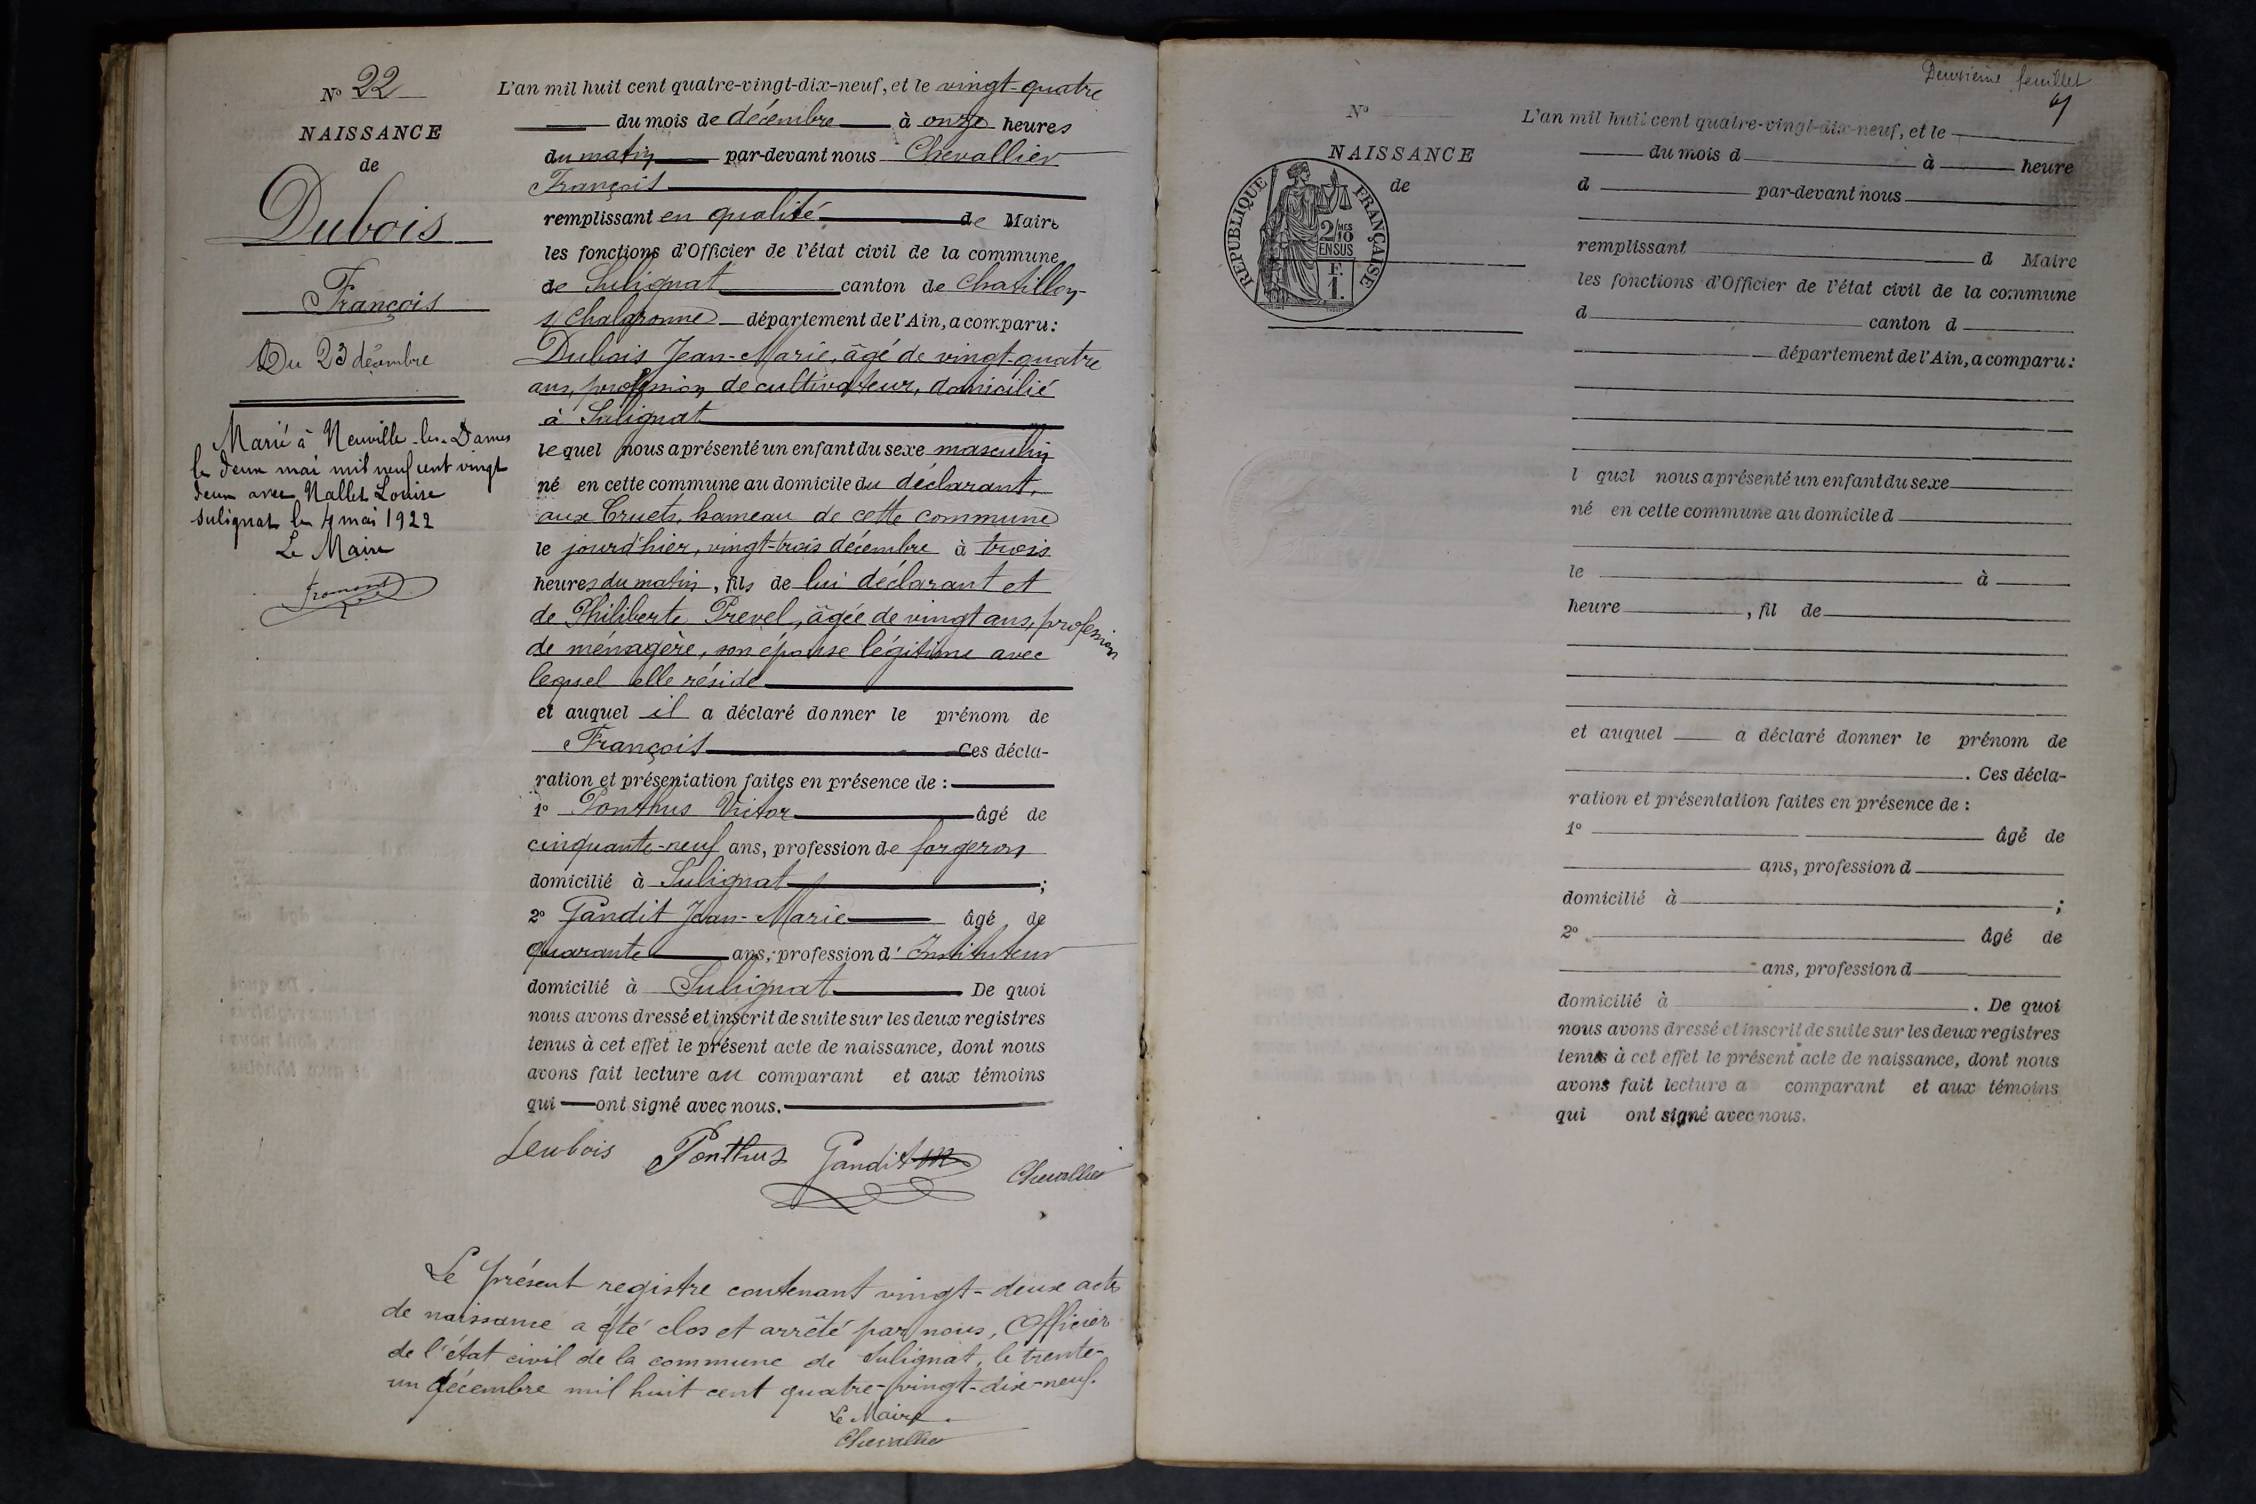 N° 22
NAISSANCE
de
Dubois
François
Du 23 décembre
Marié à Neuville-les-Dames
le deux mai mil neuf cent vingt
deux avec Nallet Louise
Sulignat le 4 mai 1922
Le Maire
Fromont
L'an mil huit cent quatre-vingt-dix-neuf, et le vingt-quatre
du mois de décembre à onze heures
du matin par-devant nous Chevallier
François
remplissant en qualité de Maire
les fonctions d'Officier de l'état civil de la commune
de Sulignat canton de Chatillon-
s/ Chalaronne département de l'Ain, a comparu:
Dubois Jean-Marie, âgé de vingt-quatre
ans, profession de cultivateur, domicilié
à Sulignat
lequel nous a présenté un enfant du sexe masculin
né en cette commune au domicile du déclarant,
aux Cruets, hameau de cette commune
le jourd'hier, vingt-trois décembre à trois
heures du matin, fils de lui déclarant et
de Philiberte Prevel, âgée de vingt ans, profession
de ménagère, son épouse légitime avec
lequel elle réside
et auquel il a déclaré donner le prénom de
François Ces décla-
ration et présentation faites en présence de :
1° Ponthus Victor âgé de
cinquante-neuf ans, profession de forgeron
domicilié à Sulignat ;
2° Gandit Jean-Marie âgé de
quarante ans, profession d'Instituteur
domicilié à Sulignat De quoi
nous avons dressé et inscrit de suite sur les deux registres
tenus à cet effet le présent acte de naissance, dont nous
avons fait lecture au comparant et aux témoins
qui ont signé avec nous.
Deubois Ponthus Gandit Chevallier
Le présent registre contenant vingt-deux actes
de naissance a été clos et arrêté par nous, Officier
de l'état civil de la commune de Sulignat, le trente-
un décembre mil huit cent quatre-vingt-dix-neuf.
Le Maire
Chevallier
Deuxième feuillet
N°
NAISSANCE
de
REPUBLIQUE FRANÇAISE
2/10 MES
EN SUS
F.
1.
L'an mil huit cent quatre-vingt-dix-neuf, et le
du mois d à heure
d par-devant nous
remplissant d Maire
les fonctions d'Officier de l'état civil de la commune
d canton d
département de l'Ain, a comparu:
l quel nous a présenté un enfant du sexe
né en cette commune au domicile d
le à
heure , fil de
et auquel a déclaré donner le prénom de
. Ces décla-
ration et présentation faites en présence de :
1° âgé de
ans, profession d
domicilié à ;
2° âgé de
ans, profession d
domicilié à . De quoi
nous avons dressé et inscrit de suite sur les deux registres
tenus à cet effet le présent acte de naissance, dont nous
avons fait lecture a comparant et aux témoins
qui ont signé avec nous.